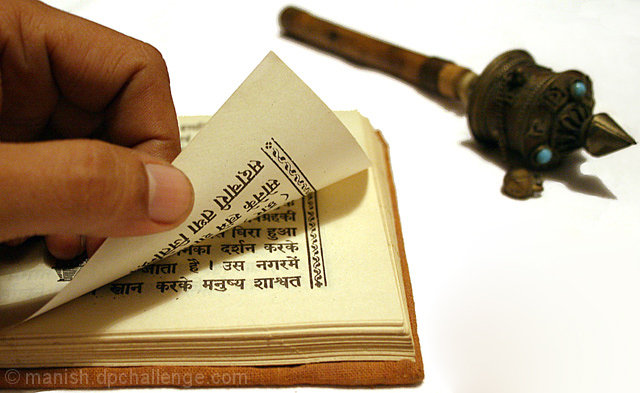 सदाचारी तथा
घिरा हुआ
दर्शन करके
जाता है । उस नगरमें
स्नान करके मनुष्य शाश्वत
© manish.dpchallenge.com